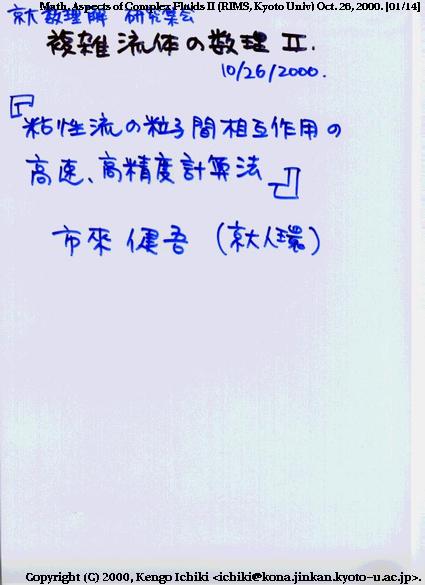 Math. Aspects of Complex Fluids II (RIMS, Kyoto Univ) Oct. 26, 2000. [01/14]
京大数理解 研究集会
複雑流体の数理 II.
10/26/2000.
『粘性流の粒子間相互作用の
高速、高精度計算法』
市來 健吾 (京大人環)
Copyright (C) 2000, Kengo Ichiki <ichiki@kona.jinkan.kyoto-u.ac.jp>.